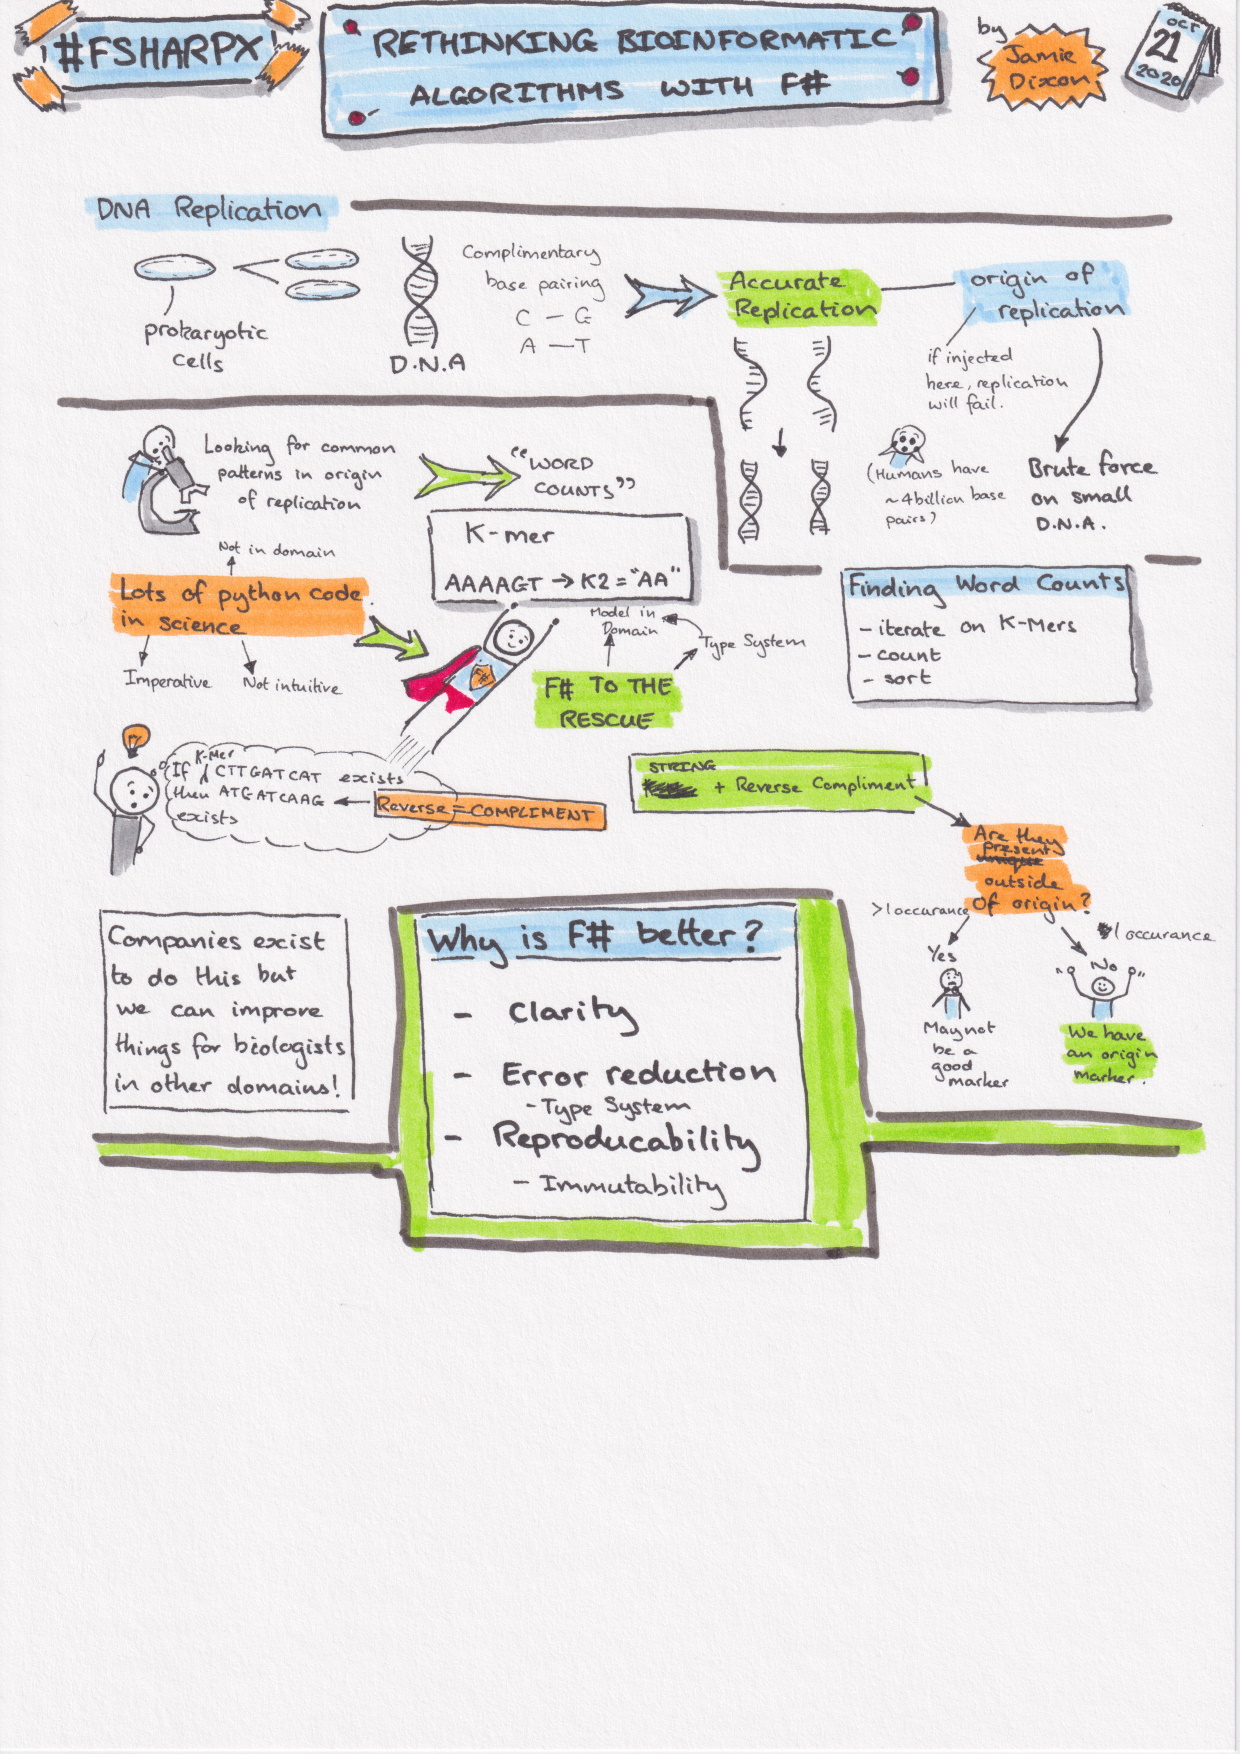 #FSHARPX
RETHINKING BIOINFORMATIC
ALGORITHMS WITH F#
by
Jamie
Dixon
OCT
21
2020
DNA Replication
prokaryotic
cells
D.N.A
Complimentary
base pairing
C — G
A — T
Accurate
Replication
origin of
replication
if injected
here, replication
will fail.
(Humans have
~4billion base
pairs)
Brute force
on small
D.N.A.
Looking for common
patterns in origin
of replication
"WORD
COUNTS"
K-mer
AAAAGT → K2 = "AA"
Not in domain
Lots of python code
in science
Imperative
Not intuitive
Model in
Domain
Type System
F# TO THE
RESCUE
Finding Word Counts
- iterate on K-Mers
- count
- sort
K-Mer
If CTTGATCAT exists
then ATGATCAAG
exists
Reverse = COMPLIMENT
STRING
+ Reverse Compliment
Are they
present
outside
of origin?
>1 occurance
Yes
May not
be a
good
marker
1 occurance
No
We have
an origin
marker.
Companies exist
to do this but
we can improve
things for biologists
in other domains!
Why is F# better?
- Clarity
- Error reduction
- Type System
- Reproducability
- Immutability